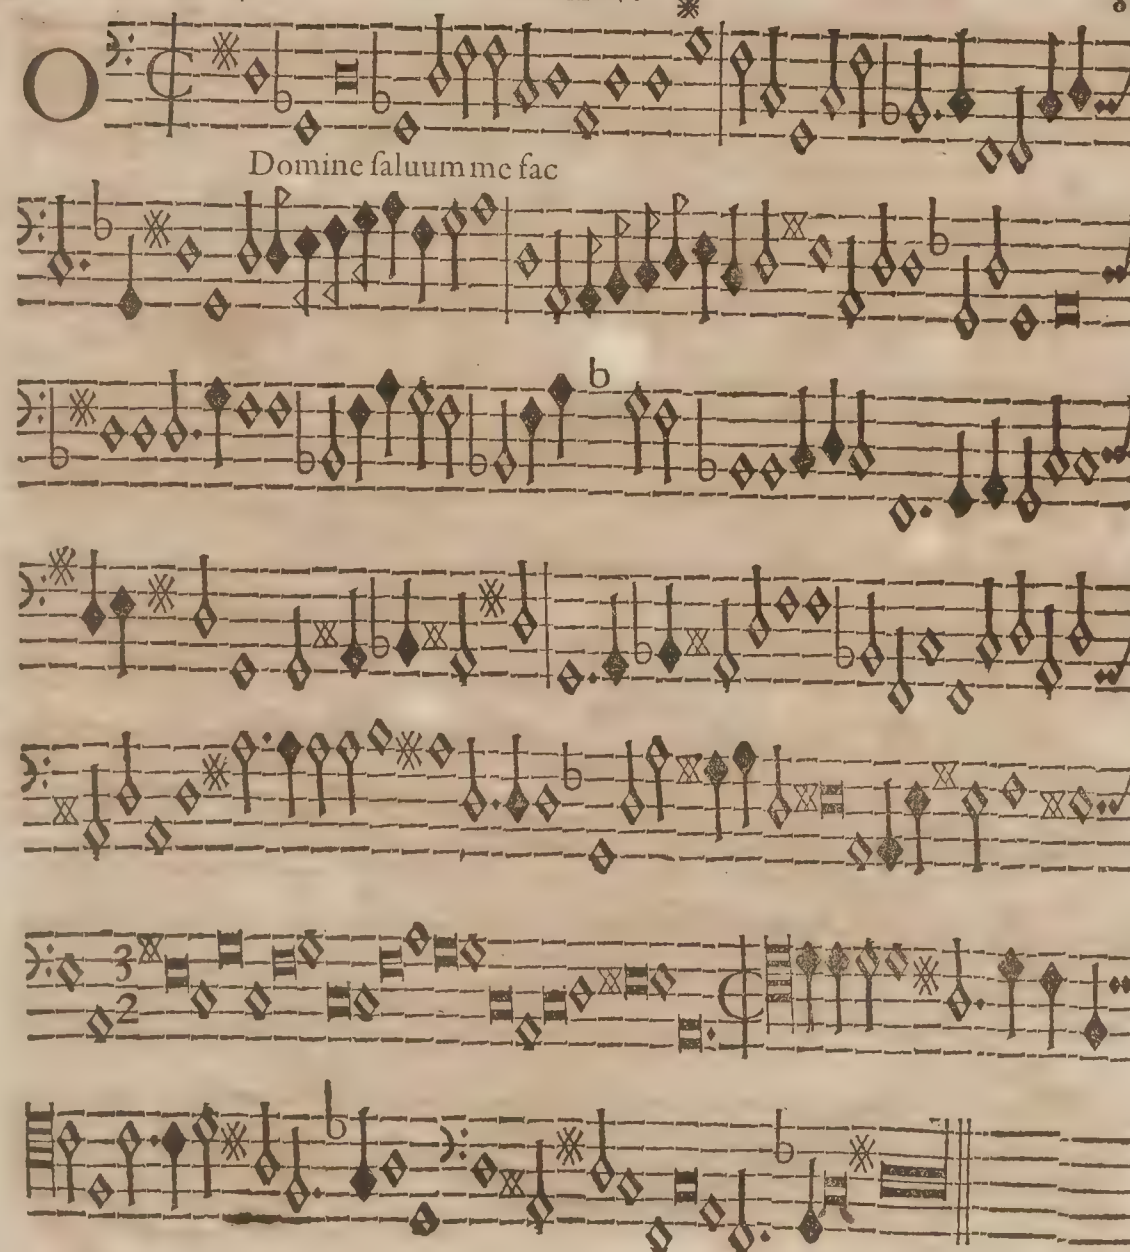 O
Domine ſaluum me fac
3
2